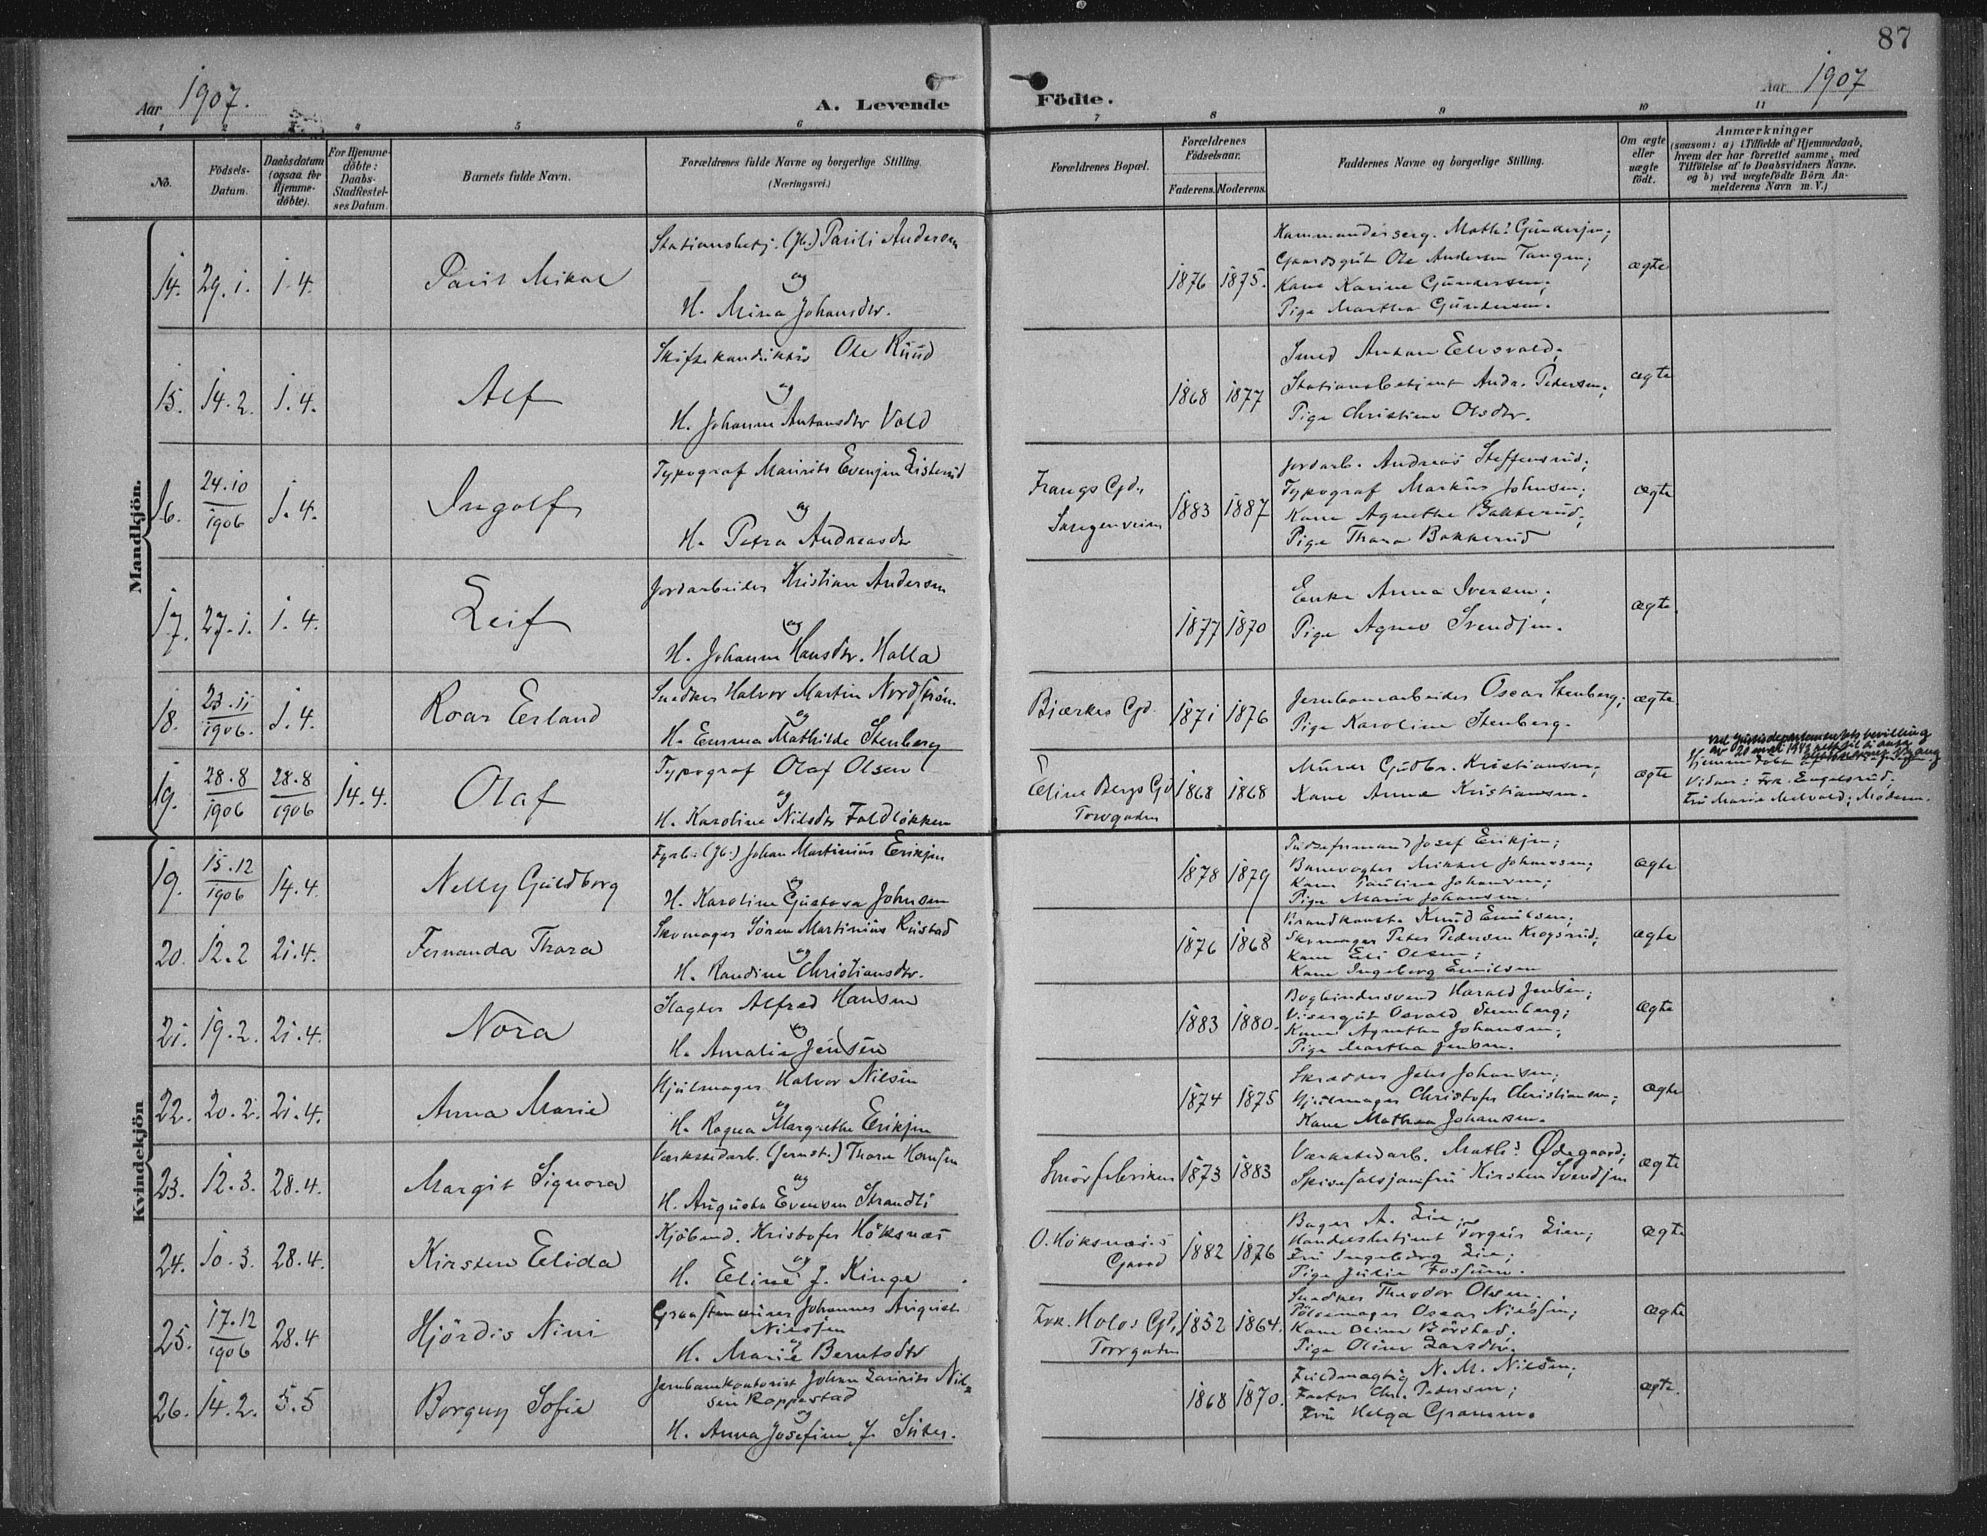 87
Aar 1907.
A. Levende Födte.
Aar 1907
1 2 3 4 5 6 7 8 9 10 11
No.
Födsels-Datum.
Daabsdatum (ogsaa for Hjemme-döbte).
For Hjemme-döbte: Daabs-Stadfæstel-ses Datum.
Barnets fulde Navn.
Forældrenes fulde Navne og borgerlige Stilling. (Næringsvei.)
Forældrenes Bopæl.
Forældrenes Födselsaar.
Faderens. Moderens.
Faddernes Navne og borgerlige Stilling.
Om ægte eller uægte födt.
Anmærkninger
(saasom: a) i Tilfælde af Hjemmedaab, hvem der har forrettet samme, med Tilföielse af to Daabsvidners Navne. og b) ved uægtefödte Börn An-melderens Navn m. V.)
Mandkjön.
14. 29.1. 1.4. Paul Mikal
Stationsbetj. (Jb.) Pauli Andersen
og
H. Mina Johansdtr.
1876 1875.
Kommandérserg. Math: Gundersen;
Gaardsgut Ole Andersen Tangen;
Kone Karine Gundersen;
Pige Martha Gundersen.
ægte
15. 14.2. 1.4. Alf
Skiftekonduktör Ole Ruud
og
H. Johanne Antonsdtr Vold
1868 1877
Smed Anton Edvsvold;
Stationsbetjent Andr. Petersen;
Pige Christine Olsdtr.
ægte
16. 24.10 1906 1.4. Ingolf
Typograf Maurits Evensen Listerud
og
H. Petra Andreasdtr
Frangs Gd.
Sangenveien
1883 1887
Jordarb. Andreas Steffensrud;
Typograf Markus Johnsen;
Kone Agnethe Bakkerud;
Pige Thora Bakkerud
ægte
17. 27.1. 1.4. Leif
Jordarbeider Kristian Andersen
og
H. Johanne Hansdtr. Halla
1877 1870
Enke Anna Iversen;
Pige Agnes Svendsen.
ægte
18. 23.11 1906. 1.4. Roar Erland
Snedker Halvor Martin Nordström
og
H. Emma Mathilde Stenberg
Bjerkes Gd.
1871 1876
Jernbanearbeider Oscar Stenberg;
Pige Karoline Stenberg.
ægte
19. 28.8 1906 28.8 1906 14.4. Olaf
Typograf Olaf Olsen
og
H. Karoline Nilsdtr Foldlökken
Eline Bergs Gd
Torvgaden
1868 1868
Murer Gudbr. Kristiansen;
Kone Anna Kristiansen.
ægte
ved Justisdepartementets bevilling
Hjemmedöbt af
Vidner: Frk. Engelsrud;
Fru Marie Melvold; Moderen.
Kvindekjön
19. 15.12 1906 14.4. Nelly Guldborg
Fyrb. (Jb.) Johan Martinius Eriksen
og
H. Karoline Gustava Johnsen
1878 1879
Pudseformand Josef Eriksen;
Banevogter Mikkel Johansen;
Kone Pauline Johansen;
Pige Marie Johansen.
ægte
20. 12.2 21.4. Fernanda Thora
Skomager Sören Martinius Rustad
og
H. Randine Christiansdtr.
1876 1868
Brandkonst. Knud Emilsen;
Skomager Peter Pedersen Krogsrud;
Kone Eli Olsen;
Kone Ingeborg Emilsen
ægte
21. 19.2. 21.4. Nora
Slagter Alfred Hansen
og
H. Amalie Jensen
1883 1880.
Bogbindersvend Harald Jensen;
Visergut Osvald Stenberg;
Kone Agnethe Johansen;
Pige Martha Jensen.
ægte
22. 20.2. 21.4. Anna Marie
Hjulmager Halvor Nilsen
og
H. Ragna Margrethe Eriksen
1874 1875
Skrædder Johs Johansen;
Hjulmager Christofer Christiansen;
Kone Mathea Johansen.
ægte
23. 12.3. 28.4. Margit Signora
Værkstedarb. (Jernst.) Thorv Hansen
og
H. Augusta Evensen Strandli
Smörfabriken
1873 1883
Værkstedarb. Math: Ødegaard;
Spisesalsjomfru Kirsten Svendsen
ægte
24. 10.3. 28.4. Kirsten Elida
Kjöbmd. Kristofer Höksnæs
og
H. Eline J. Kinge
O. Höksnæs's
Gaard
1882 1876
Bager A. Lie;
Handelsbetjent Torgeir Lien;
Fru Ingeborg Lie;
Pige Julie Fossum.
ægte
25. 17.12 1906 28.4 Hjördis Nini
Graastensmurer Johannes August
Nielsen
og
H. Marie Berntsdtr
Frk. Holos Gd,
Torvgaden
1852 1864.
Snedker Theodor Olsen;
Pölsemager Oscar Nielsen;
Kone Oline Börstad;
Pige Oline Larsdtr.
ægte
26. 14.2. 5.5 Borguny Sofie
Jernbanekontorist Johan Laurits Niel-
sen Koppestad
og
H. Anna Josefine J. Suter.
1868 1870.
Fuldmægtig N. M. Nielsen;
Faktor Chr. Petersen;
Fru Helga Gramm.
ægte.